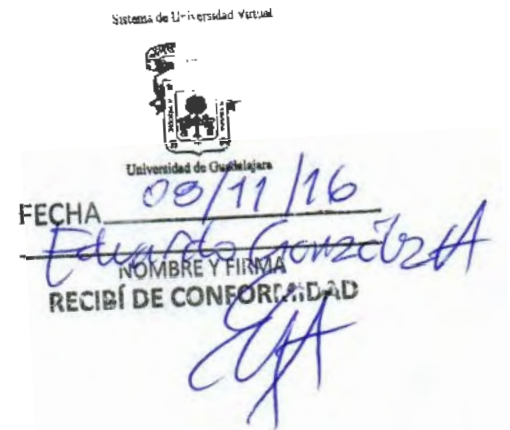 Sistema de Universidad Virtual
Universidad de Guadalajara
FECHA 09/11/16
Eduardo González A
NOMBRE Y FIRMA
RECIBÍ DE CONFORMIDAD